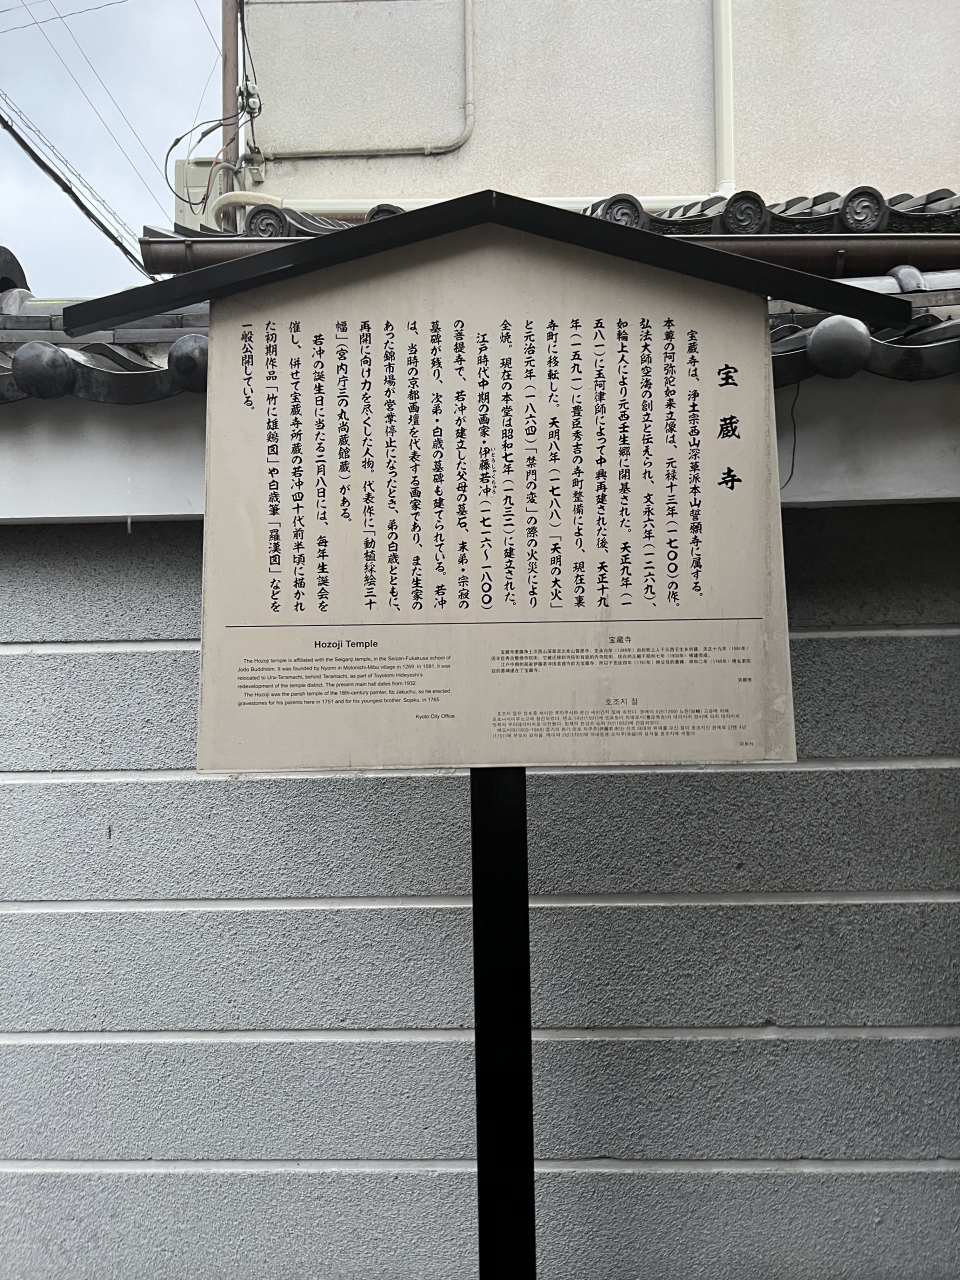 宝蔵寺
宝蔵寺は、浄土宗西山深草派本山誓願寺に属する。
本尊の阿弥陀如来立像は、元禄十三年(一七〇〇)の作。
弘法大師空海の創立と伝えられ、文永六年(一二六九)、
如輪上人により元西壬生郷に開基された。天正九年(一
五八一)に玉阿律師によって中興再建された後、天正十九
年(一五九一)に豊臣秀吉の寺町整備により、現在の裏
寺町に移転した。天明八年(一七八八)「天明の大火」
と元治元年(一八六四)「禁門の変」の際の火災により
全焼。現在の本堂は昭和七年(一九三二)に建立された。
江戸時代中期の画家・伊藤若冲(一七一六〜一八〇〇)
の菩提寺で、若冲が建立した父母の墓石、末弟・宗寂の
墓碑が残り、次弟・白歳の墓碑も建てられている。若冲
は、当時の京都画壇を代表する画家であり、また生家の
あった錦市場が営業停止になったとき、弟の白歳とともに、
再開に向け力を尽くした人物。代表作に「動植綵絵三十
幅」(宮内庁三の丸尚蔵館蔵)がある。
若冲の誕生日に当たる二月八日には、毎年生誕会を
催し、併せて宝蔵寺所蔵の若冲四十代前半頃に描かれ
た初期作品「竹に雄鶏図」や白歳筆「羅漢図」などを
一般公開している。
Hozoji Temple
The Hozoji temple is affiliated with the Seiganji temple, in the Seizan-Fukakusa school of
Jodo Buddhism. It was founded by Nyorin in Motonishi-Mibu village in 1269. In 1591, it was
relocated to Ura-Teramachi, behind Teramachi, as part of Toyotomi Hideyoshi's
redevelopment of the temple district. The present main hall dates from 1932.
The Hozoji was the parish temple of the 18th-century painter, Ito Jakuchu, so he erected
gravestones for his parents here in 1751 and for his youngest brother, Sojaku, in 1765.
Kyoto City Office
宝蔵寺
京都市
호조지 절
교토시